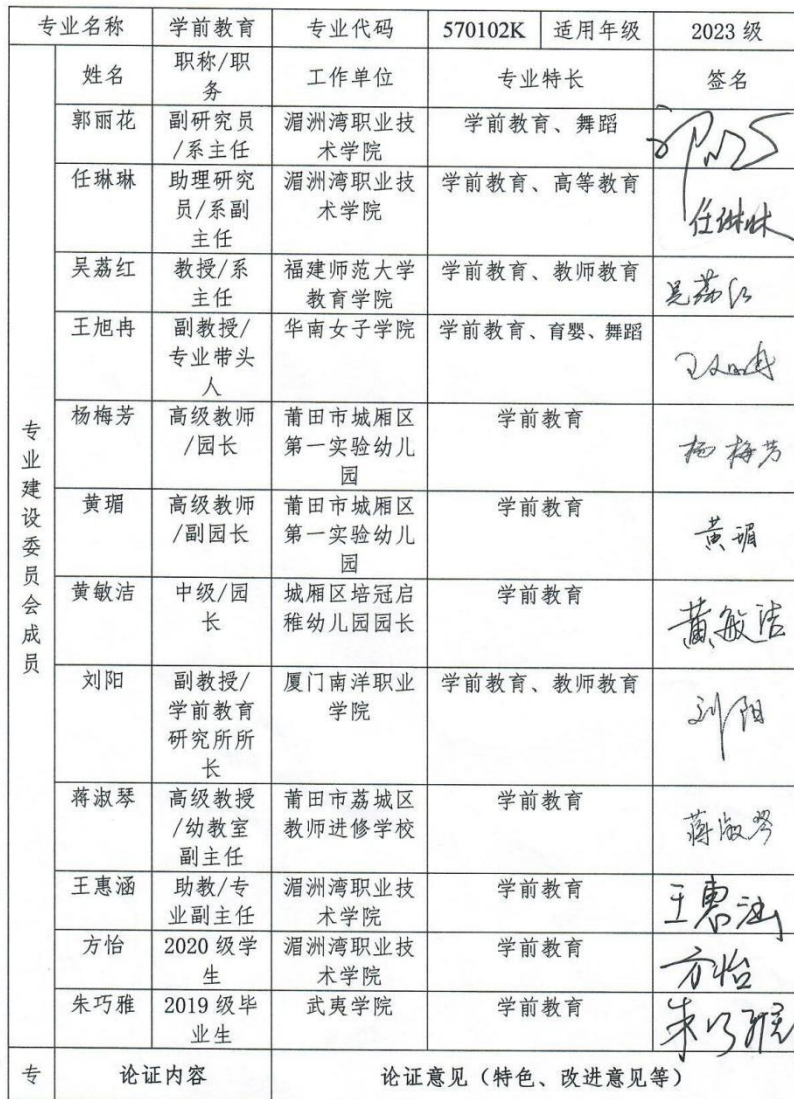 专业名称 学前教育 专业代码 570102K 适用年级 2023 级
专业建设委员会成员
姓名 职称/职务 工作单位 专业特长 签名
郭丽花 副研究员/系主任 湄洲湾职业技术学院 学前教育、舞蹈
任琳琳 助理研究员/系副主任 湄洲湾职业技术学院 学前教育、高等教育 任琳琳
吴荔红 教授/系主任 福建师范大学教育学院 学前教育、教师教育 吴荔红
王旭冉 副教授/专业带头人 华南女子学院 学前教育、育婴、舞蹈
杨梅芳 高级教师/园长 莆田市城厢区第一实验幼儿园 学前教育 杨梅芳
黄瑂 高级教师/副园长 莆田市城厢区第一实验幼儿园 学前教育 黄瑂
黄敏洁 中级/园长 城厢区培冠启稚幼儿园园长 学前教育 黄敏洁
刘阳 副教授/学前教育研究所所长 厦门南洋职业学院 学前教育、教师教育 刘阳
蒋淑琴 高级教授/幼教室副主任 莆田市荔城区教师进修学校 学前教育 蒋淑琴
王惠涵 助教/专业副主任 湄洲湾职业技术学院 学前教育 王惠涵
方怡 2020 级学生 湄洲湾职业技术学院 学前教育 方怡
朱巧雅 2019 级毕业生 武夷学院 学前教育 朱巧雅
专 论证内容 论证意见（特色、改进意见等）